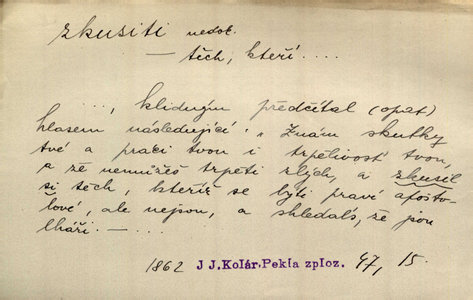 zkusiti nedok.
— těch, kteří ....
...., klidným předčítal (opat)
hlasem následující: „Znám skutky
tvé a práci tvou i trpělivost tvou,
a že nemůžeš trpěti zlých, a zkusil
si těch, kteříž se býti praví apošto-
lové, ale nejsou, a shledals, že jsou
lháři. — ....
1862 J J. Kolár. Pekla zploz. 47, 15.